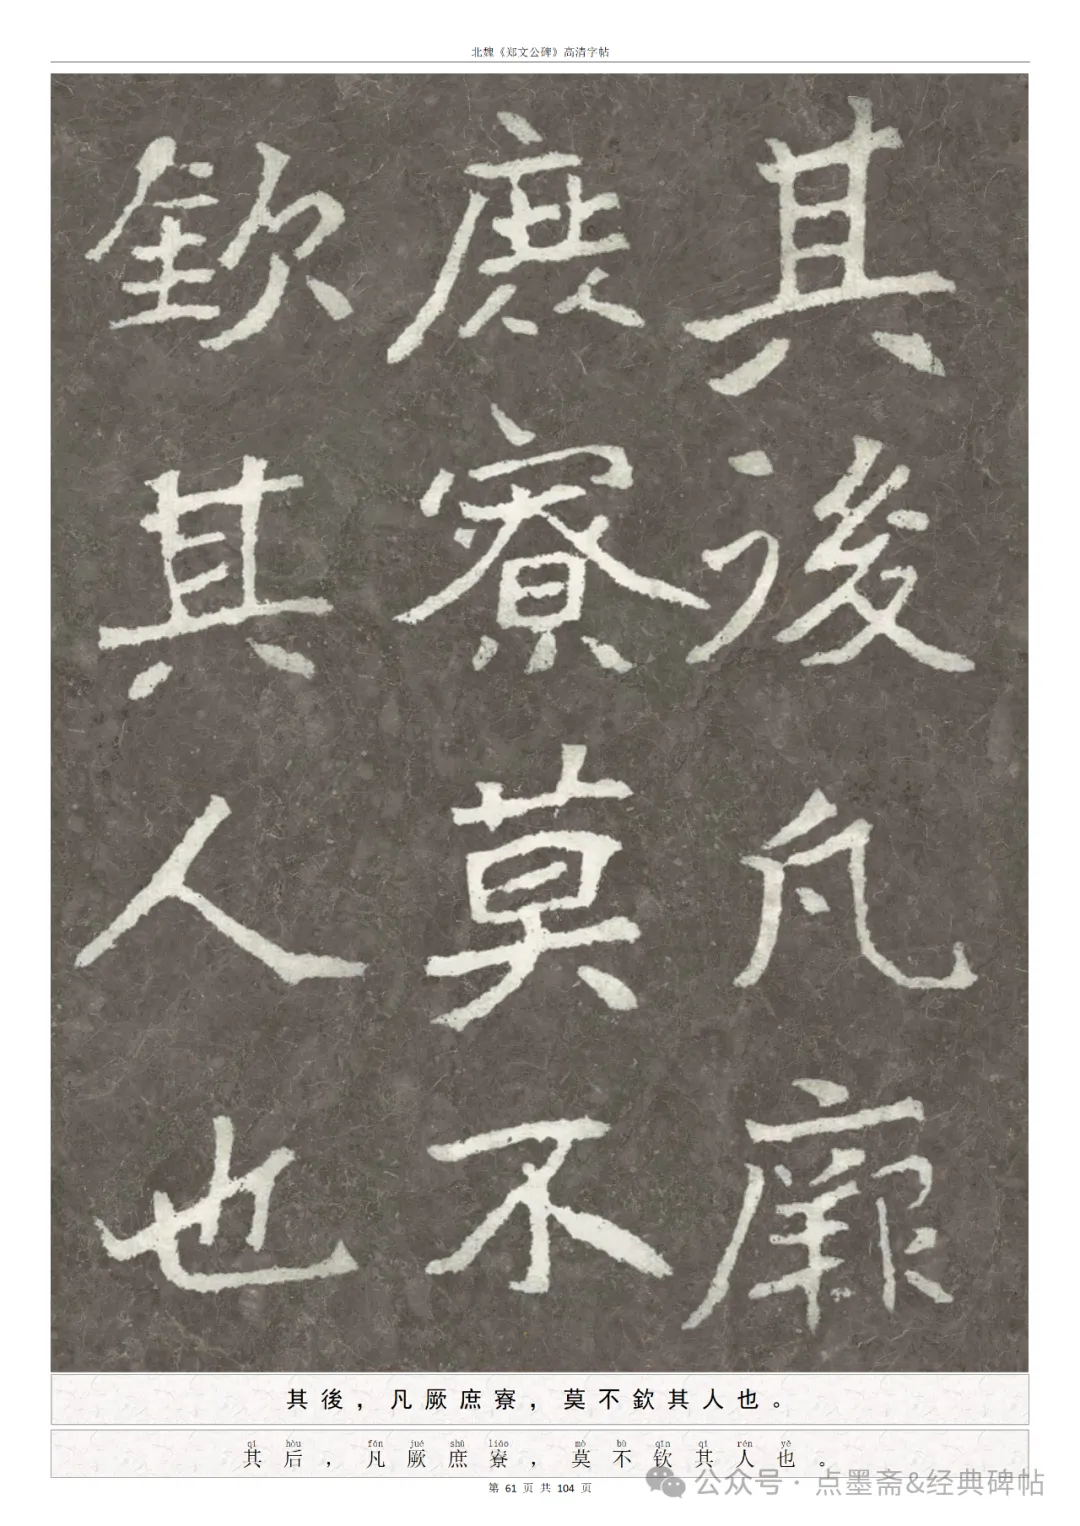 北魏《郑文公碑》高清字帖
其後凡厥
庶寮莫不
欽其人也
其後，凡厥庶寮，莫不欽其人也。
qí hòu fán jué shù liáo mò bù qīn qí rén yě
其后，凡厥庶寮，莫不钦其人也。
第 61 页 共 104 页
公众号 · 点墨斋&经典碑帖